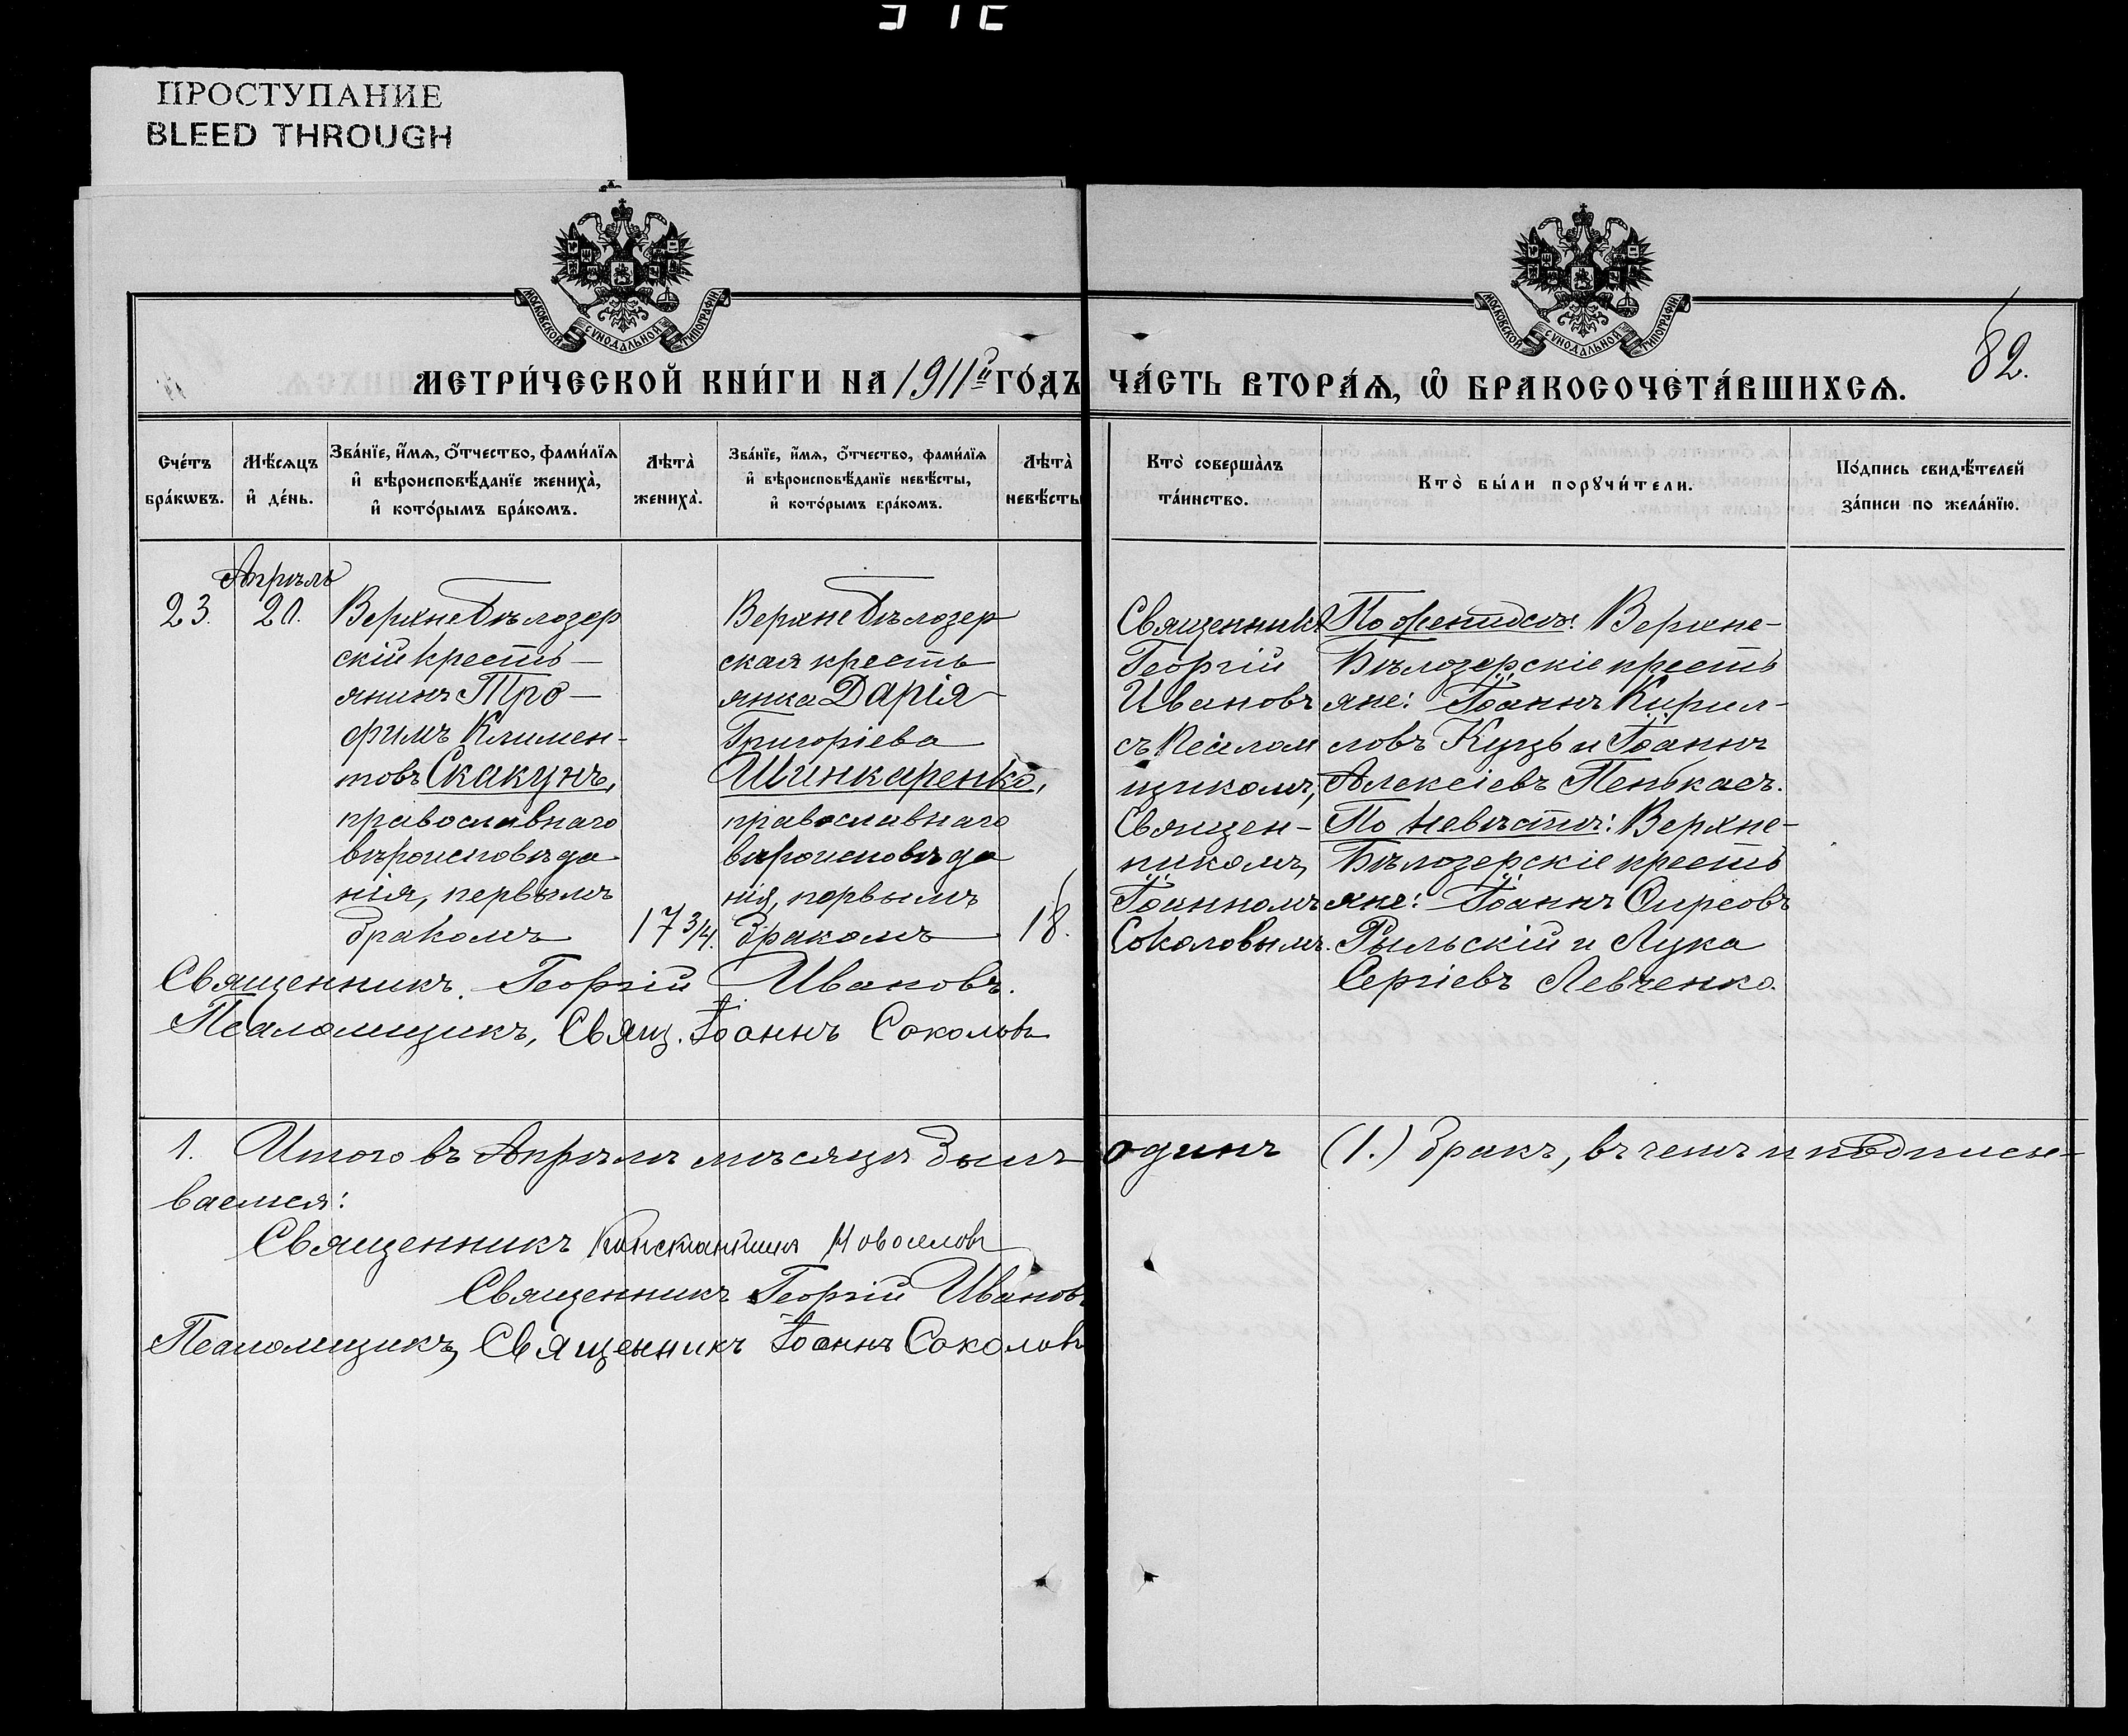 ПРОСТУПАНИЕ
BLEED THROUGH
МОСКОВСКОЙ СѴНОДАЛЬНОЙ ТИПОГРАФІИ
МОСКОВСКОЙ СѴНОДАЛЬНОЙ ТИПОГРАФІИ
82.
МЕТРИ́ЧЕСКОЙ КНИ́ГИ НА 1911й ГО́ДЪ ЧА́СТЬ ВТОРА́Ѧ, Ѿ БРАКОСОЧЕТА́ВШИХСѦ.
Сче́тъ
бра́кѡвъ.
Мѣ́сѧцъ
и҆ де́нь.
Зва́нїе, и҆́мѧ, ѻ҆́тчество, фами́лїѧ
и҆ вѣроисповѣ́данїе жениха̀,
и҆ кото́рымъ бра́комъ.
Лѣта̀
жениха̀.
Зва́нїе, и҆́мѧ, ѻ҆́тчество, фами́лїѧ
и҆ вѣроисповѣ́данїе невѣ́сты,
и҆ кото́рымъ бра́комъ.
Лѣта̀
невѣ́сты
Кто̀ соверша̀лъ
та́инство.
Кто̀ бы́ли порꙋчи́тели.
По́дпись свидѣ́телей
за́писи по жела́нїю.
23.
Апрѣль
20.
Верхнебѣлозер
скій кресть-
янинъ Тро-
фимъ Климен-
товъ Скакунъ,
православнаго
вѣроисповѣда
нія, первымъ
бракомъ
17 3/4.
Верхнебѣлозер
ская кресть
янка Дарія
Григоріева
Шинкаренко,
православнаго
вѣроисповѣда
нія, первымъ
бракомъ
18.
Священникъ
Георгій
Ивановъ
съ Псалом
щикомъ,
Священ-
никомъ,
Іоанномъ
Соколовымъ.
По женихѣ: Верхне-
Бѣлозерскіе кресть
яне: Іоаннъ Кирил-
ловъ Куцъ и Іоаннъ
Алексіевъ Пенькаса.
По невѣстѣ: Верхне-
Бѣлозерскіе кресть
яне: Іоаннъ Фирсовъ
Рыльскій и Лука
Сергіевъ Левченко.
Священникъ Георгій Ивановъ.
Псаломщикъ, Свящ. Іоаннъ Соколовъ
1. Итого въ Апрѣлѣ мѣсяцѣ былъ одинъ (1.) бракъ, въ чемъ и подписы-
ваемся:
Священникъ Константинъ Новоселовъ
Священникъ Георгій Ивановъ
Псаломщикъ, Священникъ Іоаннъ Соколовъ